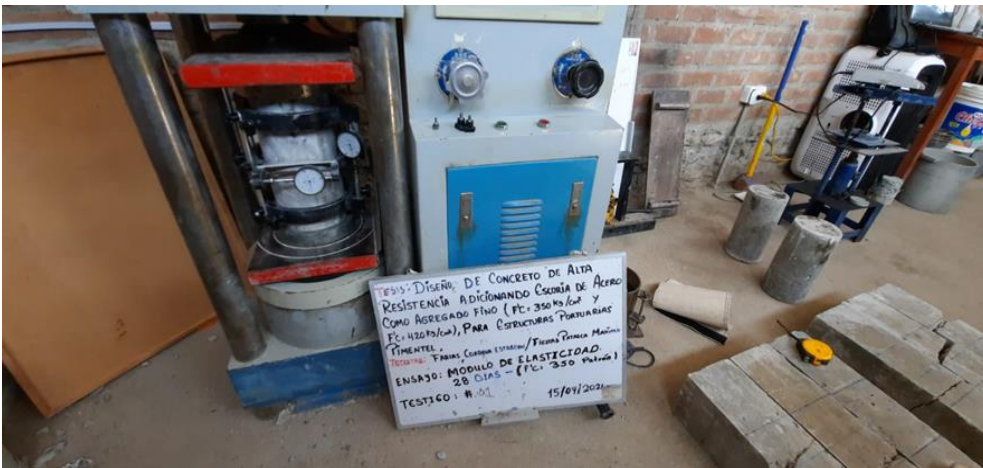 TESIS: DISEÑO DE CONCRETO DE ALTA
RESISTENCIA ADICIONANDO ESCORIA DE ACERO
COMO AGREGADO FINO (F'c = 350 KG/cm² Y
F'c = 420 KG/cm²), PARA ESTRUCTURAS PORTUARIAS
PIMENTEL.
TESISTAS: FARIAS
ENSAYO: MODULO DE ELASTICIDAD.
28 DIAS - (F'c: 350 Patrón)
TESTIGO: #.01 15/04/2021